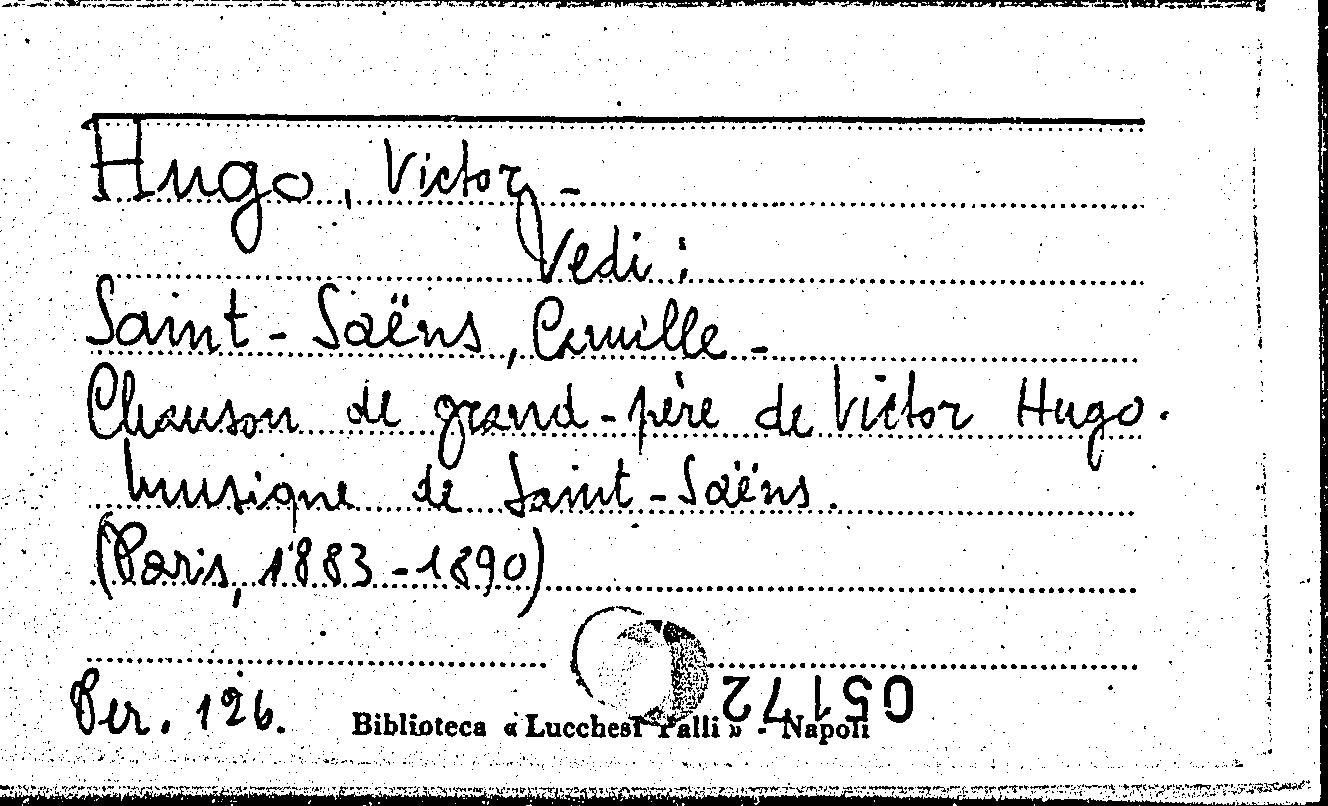 Hugo, Victor -
Vedi:
Saint-Saëns, Camille -
Chanson de grand-père de Victor Hugo.
musique de Saint-Saëns.
(Paris, 1883-1890)
Per. 126.
Biblioteca « Lucchesi Palli » - Napoli
05172